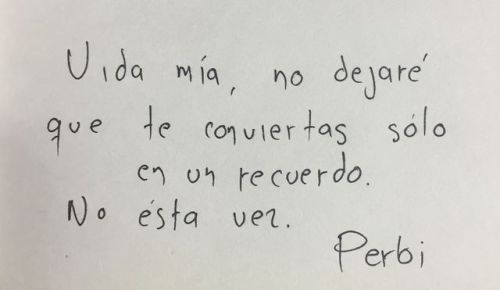 Vida mía, no dejaré
que te conviertas sólo
en un recuerdo.
No ésta vez.
Perbi